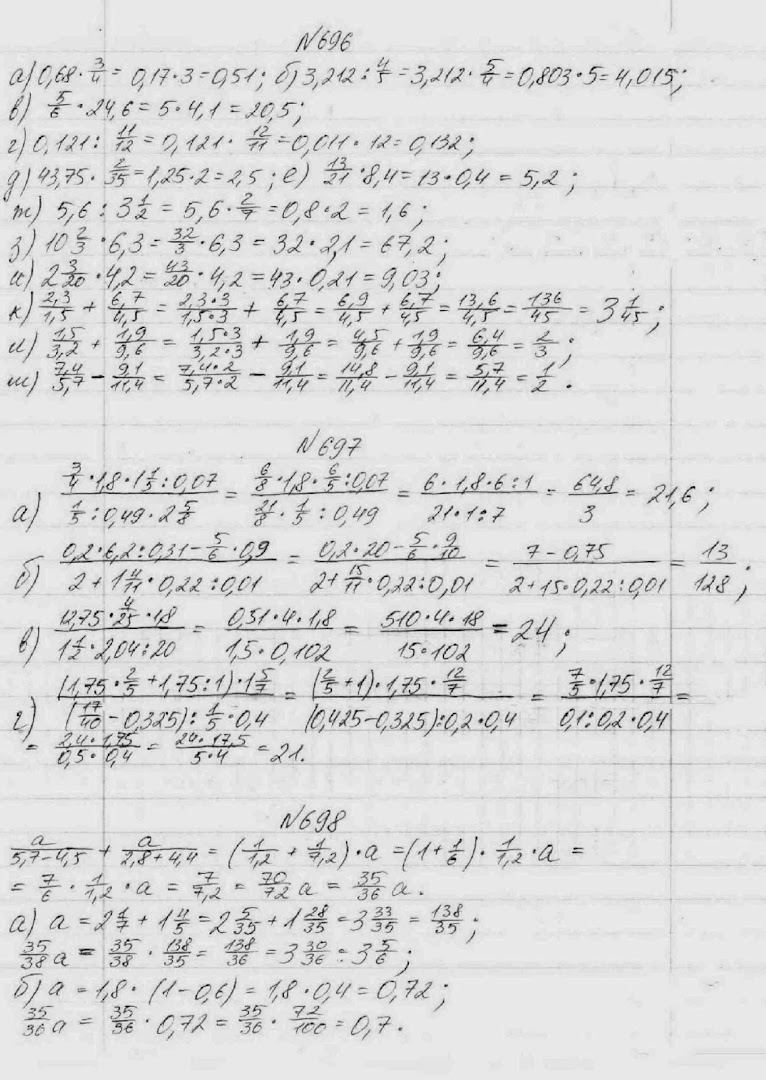 N696
а) 0,68 · 3/4 = 0,17 · 3 = 0,51; б) 3,212 : 4/5 = 3,212 · 5/4 = 0,803 · 5 = 4,015;
в) 5/6 · 24,6 = 5 · 4,1 = 20,5;
г) 0,121 : 11/12 = 0,121 · 12/11 = 0,011 · 12 = 0,132;
д) 43,75 · 2/35 = 1,25 · 2 = 2,5; е) 13/21 · 8,4 = 13 · 0,4 = 5,2;
ж) 5,6 : 3 1/2 = 5,6 · 2/7 = 0,8 · 2 = 1,6;
з) 10 2/3 · 6,3 = 32/3 · 6,3 = 32 · 2,1 = 67,2;
и) 2 3/20 · 4,2 = 43/20 · 4,2 = 43 · 0,21 = 9,03;
к) 2,3/1,5 + 6,7/4,5 = 2,3·3/1,5·3 + 6,7/4,5 = 6,9/4,5 + 6,7/4,5 = 13,6/4,5 = 136/45 = 3 1/45;
л) 1,5/3,2 + 1,9/9,6 = 1,5·3/3,2·3 + 1,9/9,6 = 4,5/9,6 + 1,9/9,6 = 6,4/9,6 = 2/3;
м) 7,4/5,7 − 9,1/11,4 = 7,4·2/5,7·2 − 9,1/11,4 = 14,8/11,4 − 9,1/11,4 = 5,7/11,4 = 1/2.
N697
а) (3/4 · 1,8 · 1 1/5 : 0,07)/(1/5 : 0,49 · 2 5/8) = (6/8 · 1,8 · 6/5 : 0,07)/(21/8 · 1/5 : 0,49) = (6 · 1,8 · 6 : 1)/(21 · 1 : 7) = 64,8/3 = 21,6;
б) (0,2 · 6,2 : 0,31 − 5/6 · 0,9)/(2 + 1 4/11 · 0,22 : 0,01) = (0,2 · 20 − 5/6 · 9/10)/(2 + 15/11 · 0,22 : 0,01) = (7 − 0,75)/(2 + 15 · 0,22 : 0,01) = 13/128;
в) (12,75 · 4/25 · 1,8)/(1 1/2 · 2,04 : 20) = (0,51 · 4 · 1,8)/(1,5 · 0,102) = (510 · 4 · 18)/(15 · 102) = 24;
г) ((1,75 · 2/5 + 1,75 : 1) · 1 5/7)/((17/40 − 0,325) : 1/5 · 0,4) = ((2/5 + 1) · 1,75 · 12/7)/((0,425 − 0,325) : 0,2 · 0,4) = (7/5 · 1,75 · 12/7)/(0,1 : 0,2 · 0,4) =
= (2,4 · 1,75)/(0,5 · 0,4) = (24 · 17,5)/(5 · 4) = 21.
N698
a/(5,7 − 4,5) + a/(2,8 + 4,4) = (1/1,2 + 1/7,2) · a = (1 + 1/6) · 1/1,2 · a =
= 7/6 · 1/1,2 · a = 7/7,2 = 70/72 a = 35/36 a.
а) a = 2 1/7 + 1 4/5 = 2 5/35 + 1 28/35 = 3 33/35 = 138/35;
35/38 a = 35/38 · 138/35 = 138/36 = 3 30/36 = 3 5/6;
б) a = 1,8 · (1 − 0,6) = 1,8 · 0,4 = 0,72;
35/36 a = 35/36 · 0,72 = 35/36 · 72/100 = 0,7.